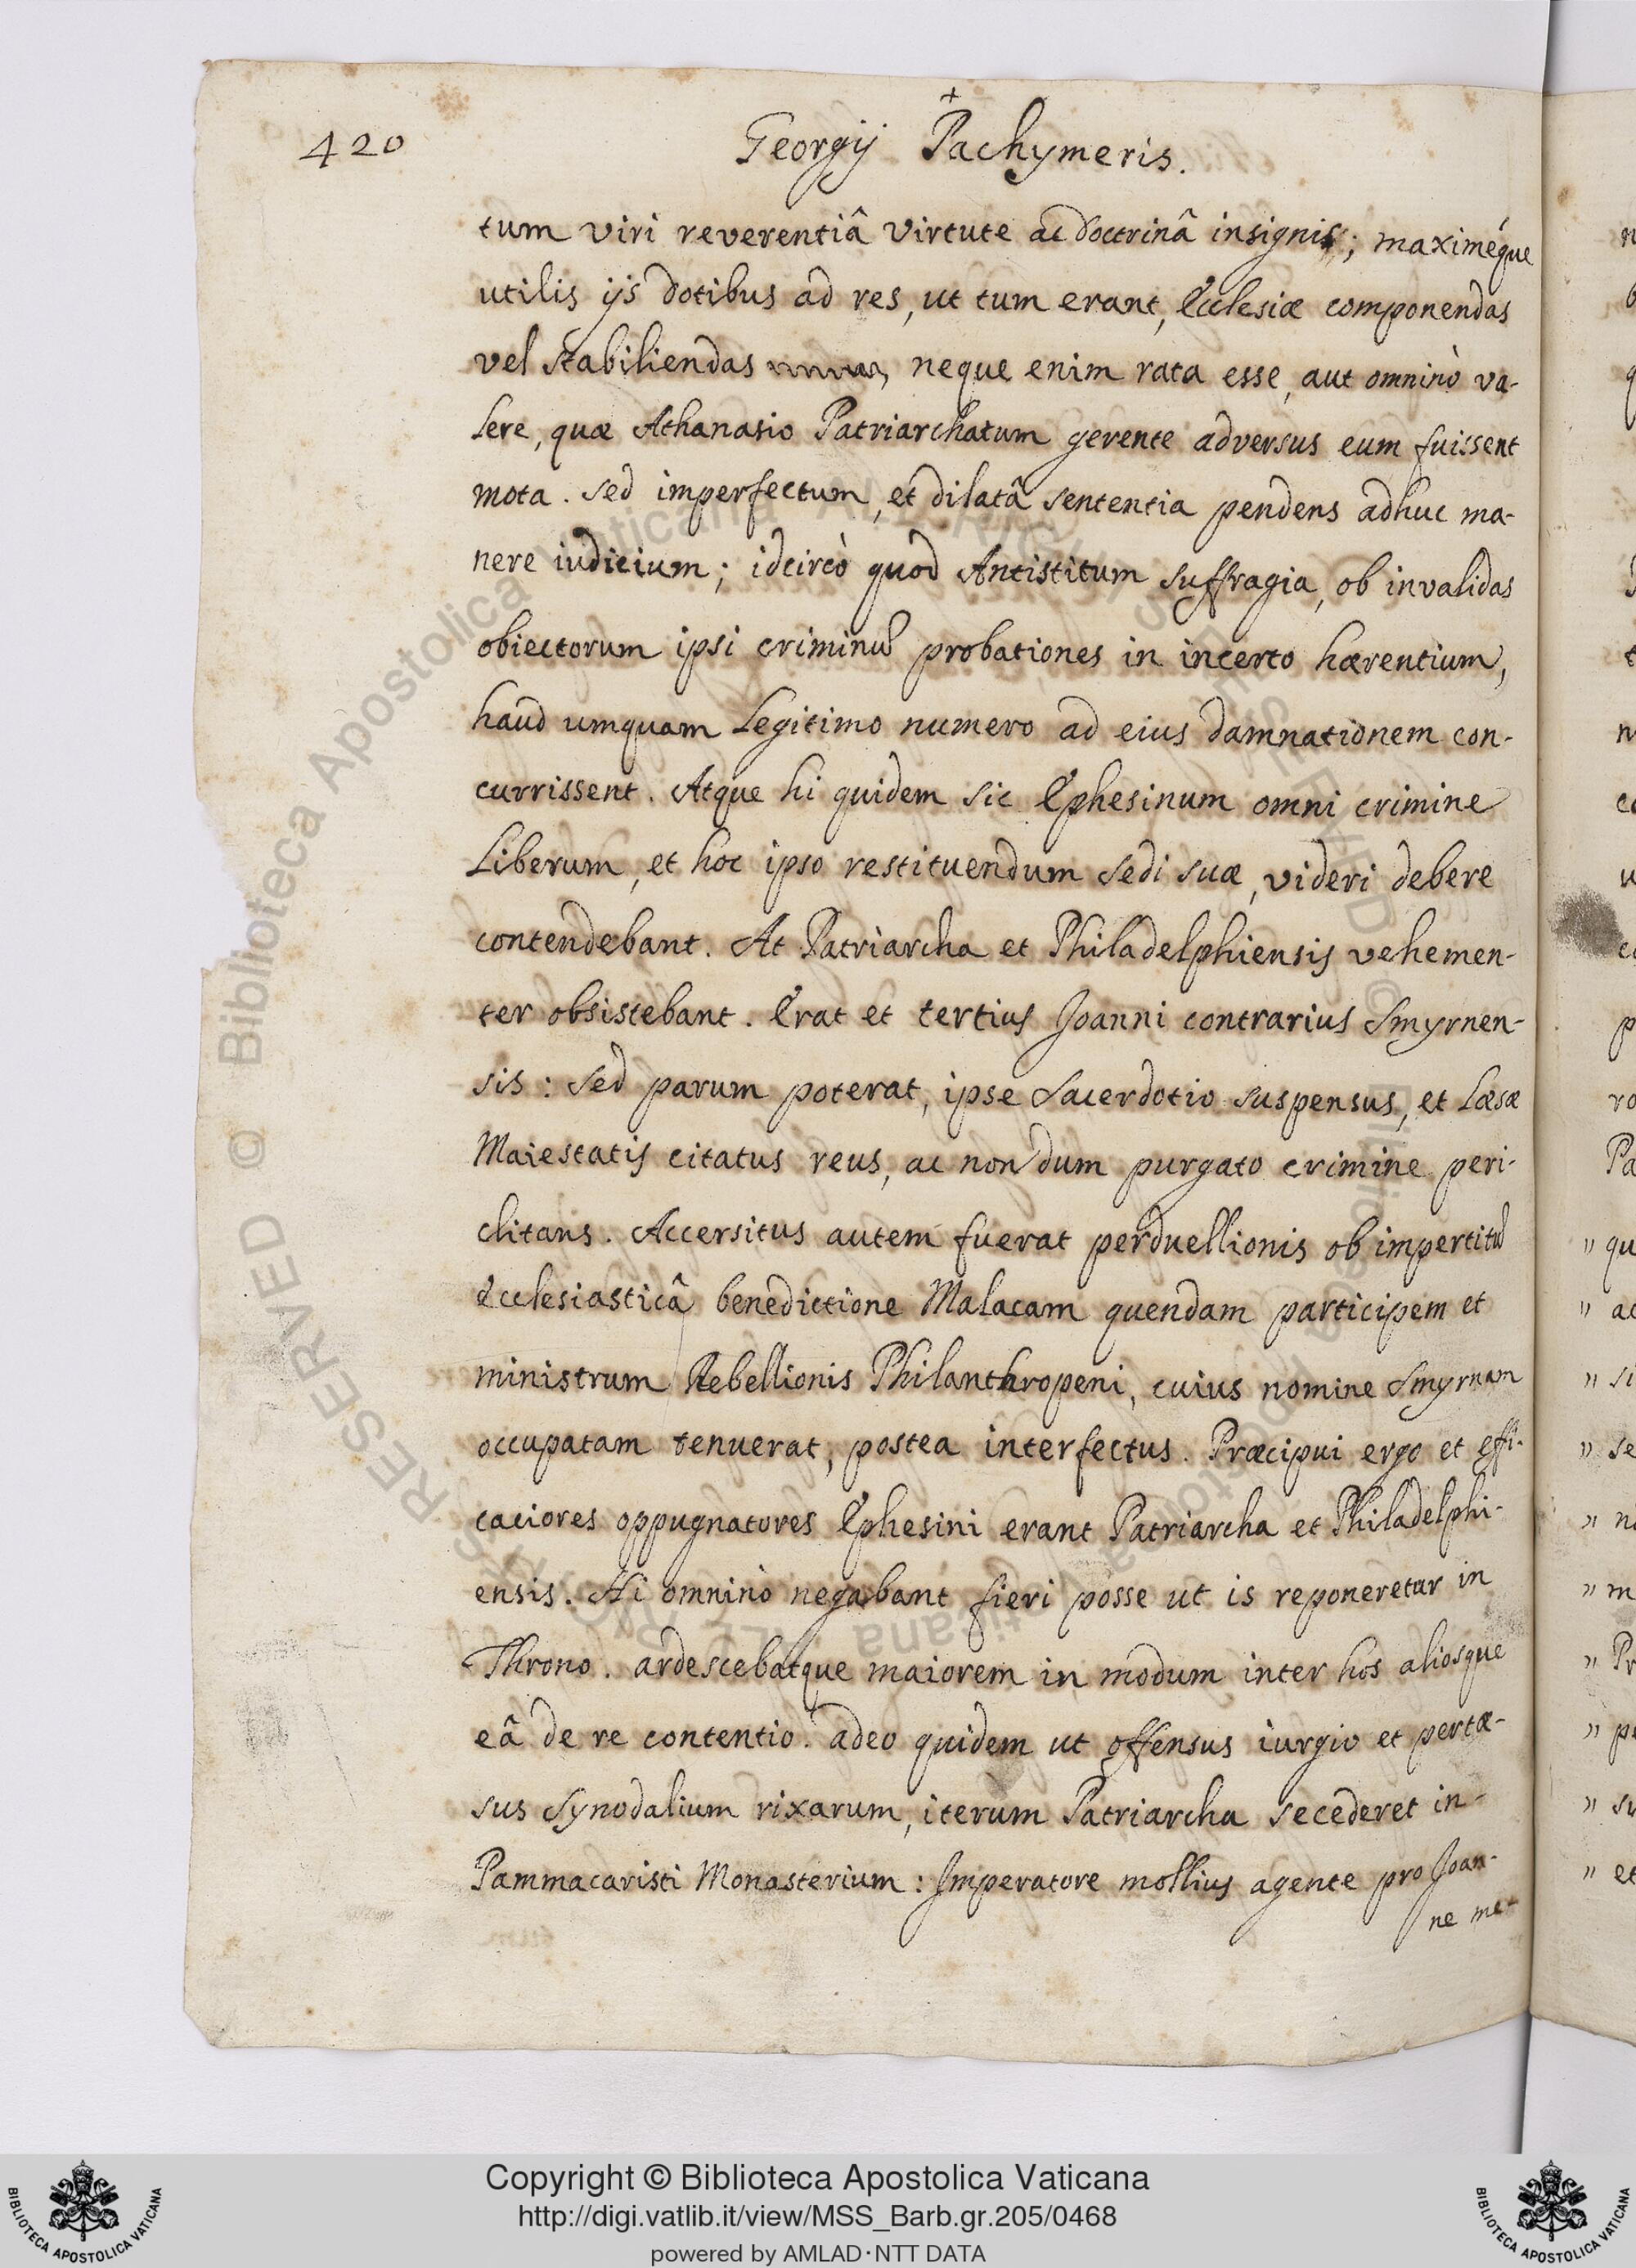 420
+
Georgij Pachymeris.
tum viri reverentiâ virtute ac doctrinâ insignis; maximéque
utilis ijs dotibus ad res, ut tum erant, Ecclesiæ componendas
vel stabiliendas neque enim rata esse, aut omninò va-
lere, quæ Athanasio Patriarchatum gerente adversus eum fuissent
mota. sed imperfectum, et dilatâ sententia pendens adhuc ma-
nere iudicium; idcircò quod Antistitum suffragia, ob invalidas
obiectorum ipsi criminũ probationes in incerto hærentium,
haud umquam legitimo numero ad eius damnationem con-
currissent. Atque hi quidem sic Ephesinum omni crimine
Liberum, et hoc ipso restituendum sedi suæ, videri debere
contendebant. At Patriarcha et Philadelphiensis vehemen-
ter obsistebant. Erat et tertius Joanni contrarius Smyrnen-
sis: sed parum poterat, ipse Sacerdotio suspensus, et Læsæ
Maiestatis citatus reus, ac nondum purgato crimine peri-
clitans. Accersitus autem fuerat perduellionis ob impertitũ
Ecclesiasticâ benedictione Malacam quendam participem et
ministrum Rebellionis Philanthropeni, cuius nomine Smyrnam
occupatam tenuerat, postea interfectus. Præcipui ergo et effi-
caciores oppugnatores Ephesini erant Patriarcha et Philadelphi-
ensis. Hi omninò negabant fieri posse ut is reponeretur in
Throno. ardescebatque maiorem in modum inter hos aliosque
eâ de re contentio. adeo quidem ut offensus iurgio et pertæ-
sus Synodalium rixarum, iterum Patriarcha secederet in
Pammacaristi Monasterium: Imperatore mollius agente pro Joan-
ne me-
Copyright © Biblioteca Apostolica Vaticana
http://digi.vatlib.it/view/MSS_Barb.gr.205/0468
powered by AMLAD·NTT DATA
BIBLIOTECA APOSTOLICA VATICANA
BIBLIOTECA APOSTOLICA VATICANA